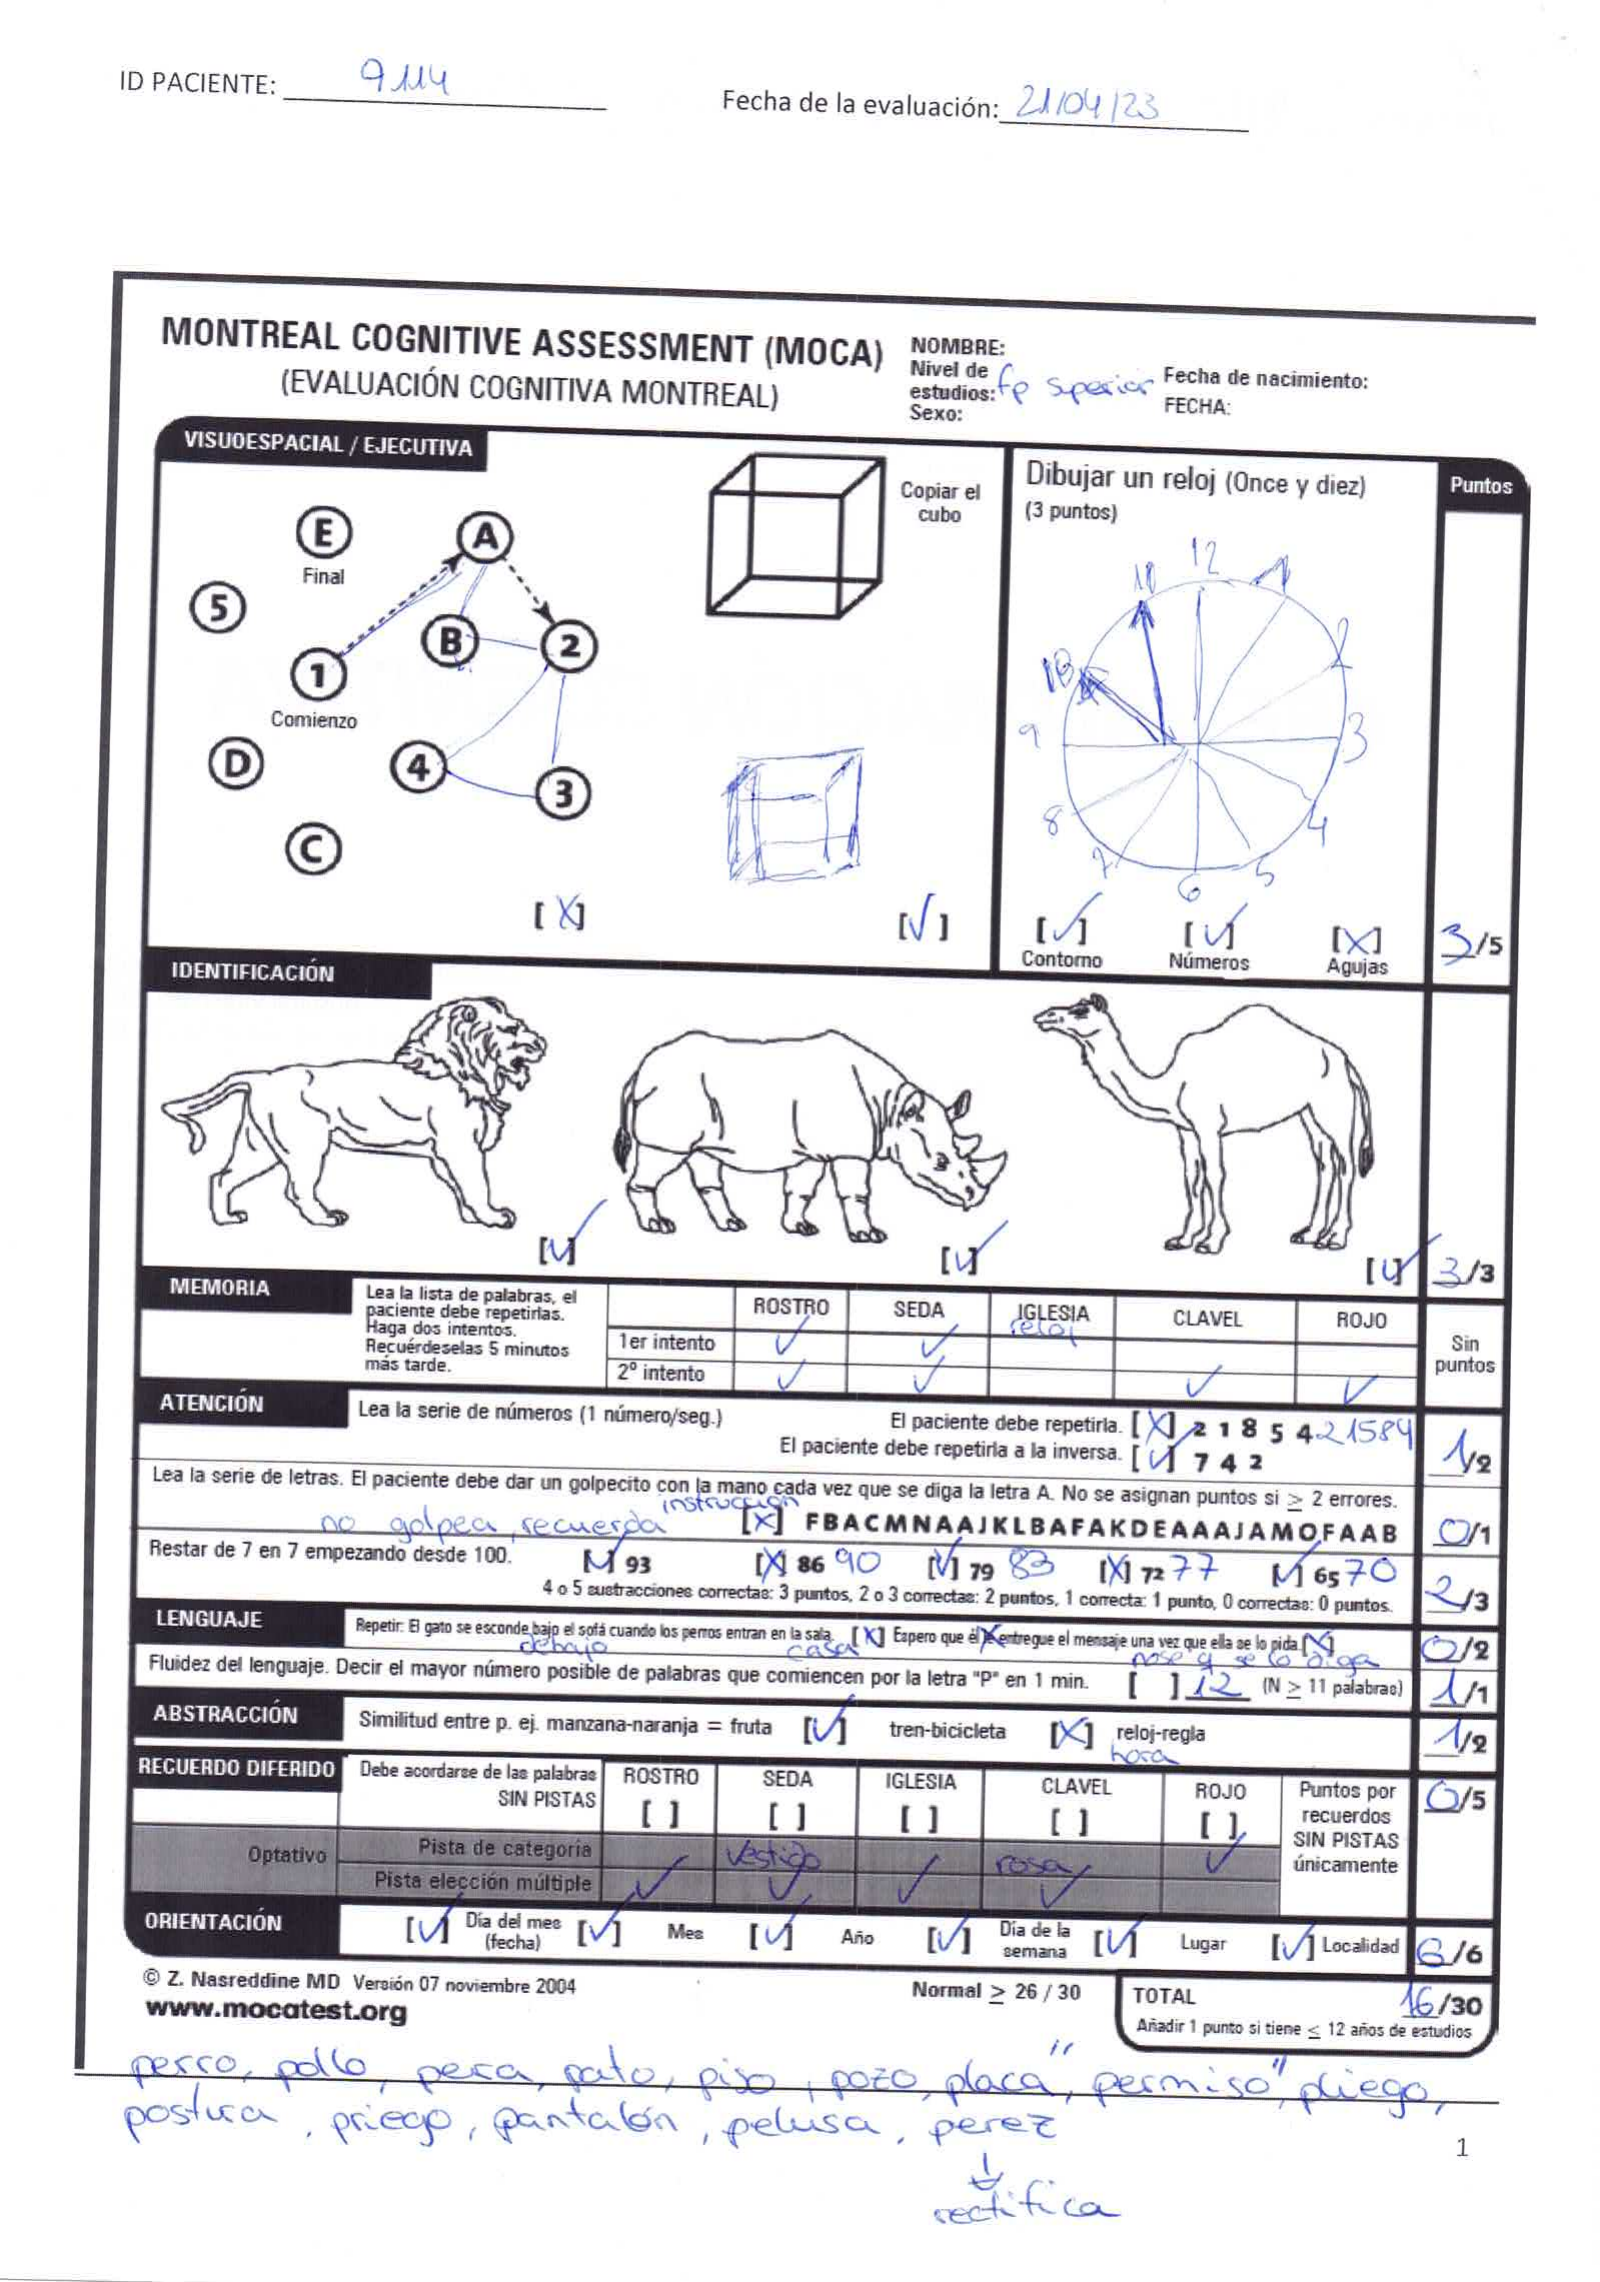 ID PACIENTE: 9114
Fecha de la evaluación: 21/04/23
MONTREAL COGNITIVE ASSESSMENT (MOCA)
(EVALUACIÓN COGNITIVA MONTREAL)
NOMBRE:
Nivel de estudios: fp superior
Sexo:
Fecha de nacimiento:
FECHA:
VISUOESPACIAL / EJECUTIVA
E
Final
A
5
B
2
1
Comienzo
D
4
3
C
[X]
Copiar el
cubo
[✓]
Dibujar un reloj (Once y diez)
(3 puntos)
12
1
2
3
4
5
6
7
8
9
10
[✓] Contorno
[✓] Números
[X] Agujas
Puntos
3/5
IDENTIFICACIÓN
[✓] [✓] [✓] 3/3
MEMORIA
Lea la lista de palabras, el
paciente debe repetirlas.
Haga dos intentos.
Recuérdeselas 5 minutos
más tarde.
ROSTRO SEDA IGLESIA CLAVEL ROJO
1er intento ✓ ✓ reloj
2º intento ✓ ✓ ✓ ✓
Sin
puntos
ATENCIÓN
Lea la serie de números (1 número/seg.)
El paciente debe repetirla. [X] 2 1 8 5 4 21584
El paciente debe repetirla a la inversa. [✓] 7 4 2
1/2
Lea la serie de letras. El paciente debe dar un golpecito con la mano cada vez que se diga la letra A. No se asignan puntos si ≥ 2 errores.
no golpea, recuerda instrucción [X] FBACMNAAJKLBAFAKDEAAAJAMOFAAB 0/1
Restar de 7 en 7 empezando desde 100. [✓] 93 [X] 86 90 [✓] 79 83 [X] 72 77 [✓] 65 70
4 o 5 sustracciones correctas: 3 puntos, 2 o 3 correctas: 2 puntos, 1 correcta: 1 punto, 0 correctas: 0 puntos. 2/3
LENGUAJE
Repetir: El gato se esconde bajo el sofá cuando los perros entran en la sala. [X] Espero que él le entregue el mensaje una vez que ella se lo pida. [X] 0/2
debajo casa se lo diga
Fluidez del lenguaje. Decir el mayor número posible de palabras que comiencen por la letra "P" en 1 min. [ ] 12 (N ≥ 11 palabras) 1/1
ABSTRACCIÓN
Similitud entre p. ej. manzana-naranja = fruta [✓] tren-bicicleta [X] reloj-regla 1/2
hora
RECUERDO DIFERIDO
Debe acordarse de las palabras
SIN PISTAS
ROSTRO SEDA IGLESIA CLAVEL ROJO
[ ] [ ] [ ] [ ] [ ]
Puntos por
recuerdos
SIN PISTAS
únicamente
0/5
Optativo
Pista de categoría vestido rosa ✓
Pista elección múltiple ✓ ✓ ✓ ✓
ORIENTACIÓN
[✓] Día del mes (fecha) [✓] Mes [✓] Año [✓] Día de la semana [✓] Lugar [✓] Localidad 6/6
© Z. Nasreddine MD Versión 07 noviembre 2004
www.mocatest.org
Normal ≥ 26 / 30
TOTAL 16/30
Añadir 1 punto si tiene ≤ 12 años de estudios
perro, pollo, pera, pato, piso, pozo, placa, "permiso", pliego,
postura, priego, pantalón, pelusa, perez
rectifica
1